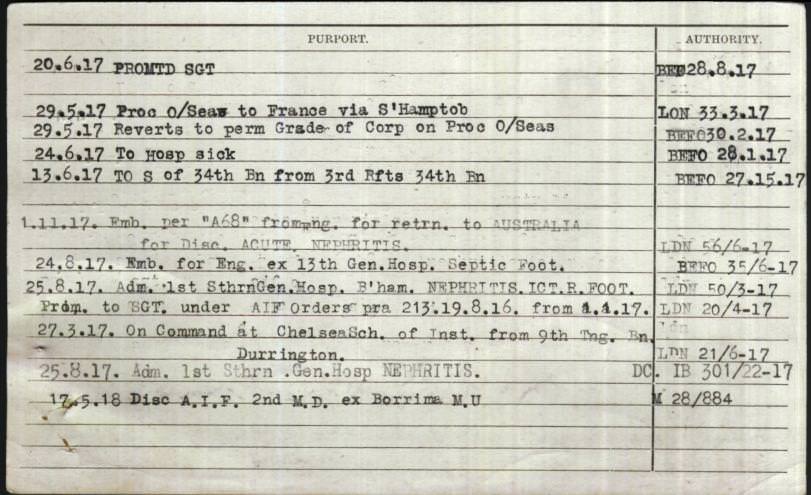 PURPORT. AUTHORITY.
20.6.17 PROMTD SGT BEF 28.8.17
29.5.17 Proc O/Seas to France via S'Hamptob LON 33.3.17
29.5.17 Reverts to perm Grade of Corp on Proc O/Seas BEFO30.2.17
24.6.17 To Hosp sick BEFO 28.1.17
13.6.17 TO S of 34th Bn from 3rd Rfts 34th Bn BEFO 27.15.17
1.11.17. Emb. per "A68" from Eng. for retrn. to AUSTRALIA
for Disc. ACUTE NEPHRITIS. LDN 56/6-17
24.8.17. Emb. for Eng. ex 13th Gen.Hosp. Septic Foot. BEFO 35/6-17
25.8.17. Adm. 1st SthrnGen.Hosp. B'ham. NEPHRITIS.ICT.R.FOOT. LDN 50/3-17
Prom. to SGT. under AIF Orders pra 213.19.8.16. from 4.4.17. LDN 20/4-17
27.3.17. On Command at ChelseaSch. of Inst. from 9th Tng. Bn. Ldn
Durrington. LDN 21/6-17
25.8.17. Adm. 1st Sthrn .Gen.Hosp NEPHRITIS. DC. IB 301/22-17
17.5.18 Disc A.I.F. 2nd M.D. ex Borrima M.U M 28/884